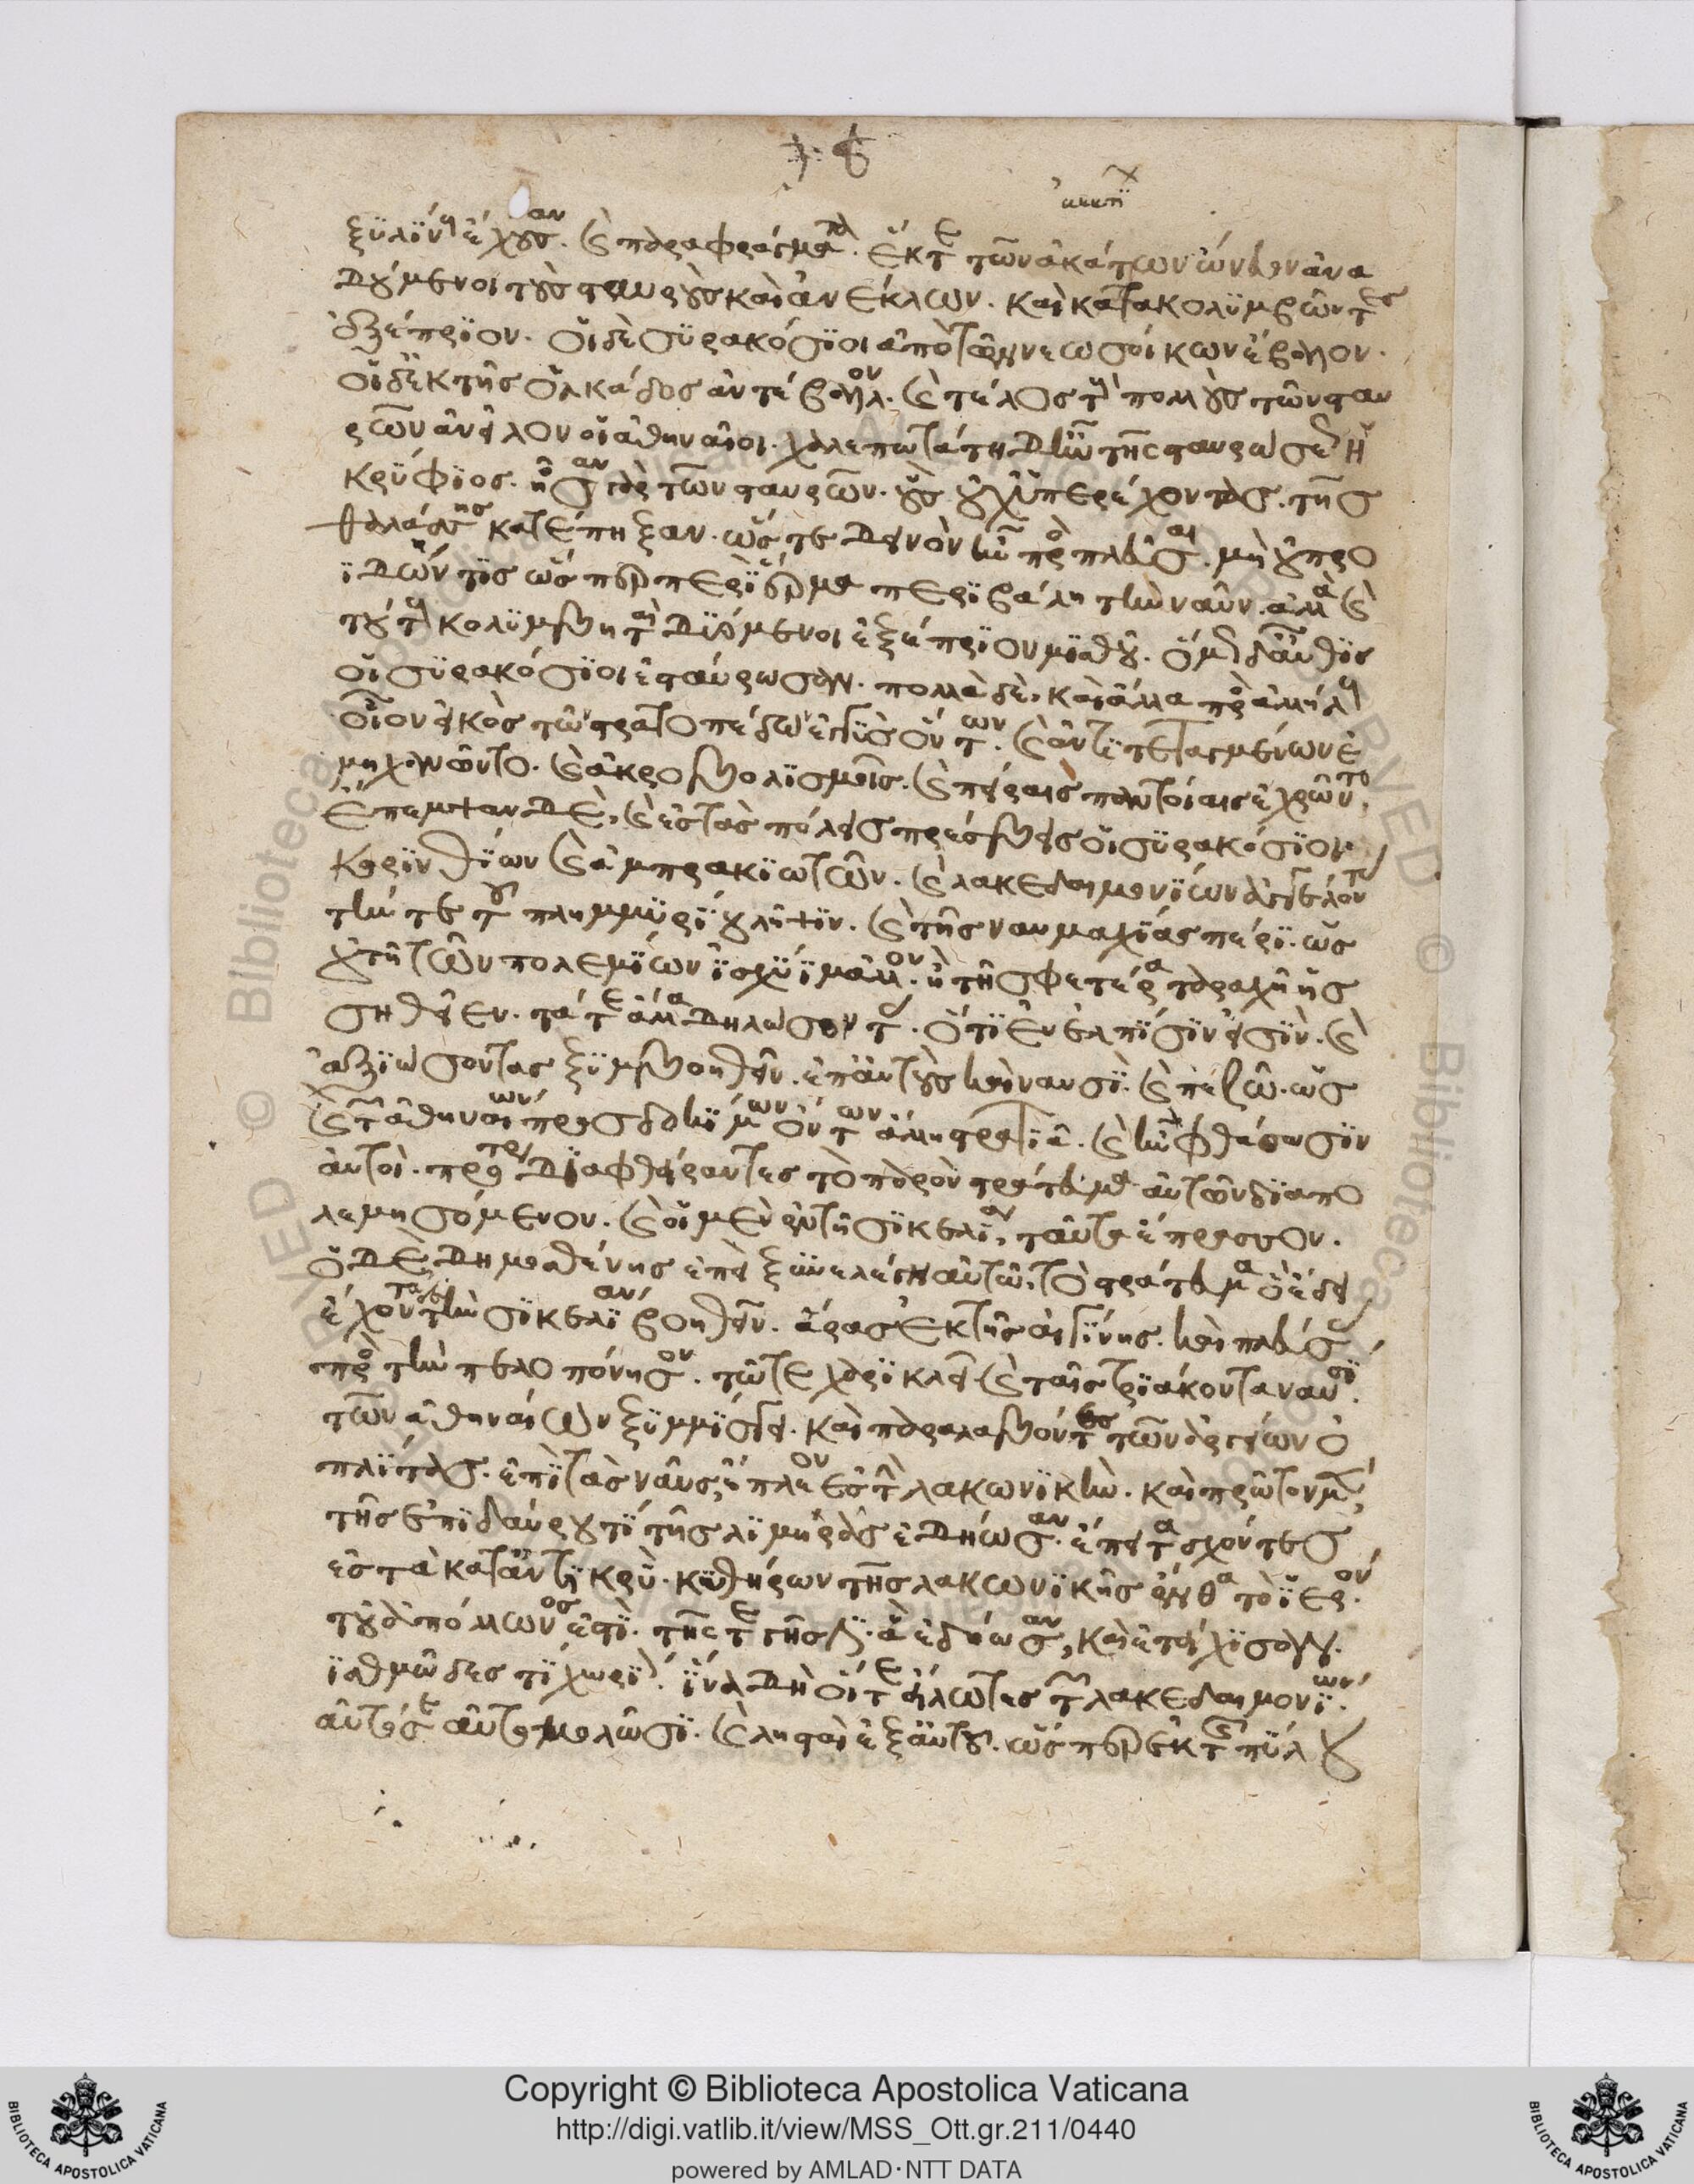 ξυλίνους ἔχουσαν. καὶ παραφράγματα. ἔκ τε τῶν ἀκάτων ὤνευον ἀνα
δούμενοι τοὺς σταυροὺς καὶ ἀνέκλων. καὶ κατακολυμβῶντες
ἐξέπριον. οἱ δὲ συρακόσιοι ἀπὸ τῶν νεωσοίκων ἔβαλλον.
οἱ δ' ἐκ τῆς ὁλκάδος ἀντέβαλλον. καὶ τέλος τοὺς πολλοὺς τῶν σταυ
ρῶν ἀνεῖλον οἱ ἀθηναῖοι. χαλεπωτάτη δ' ἦν τῆς σταυρώσεως ἡ
κρύφιος. ἦσαν γὰρ τῶν σταυρῶν. οὓς οὐχ ὑπερέχοντας. τῆς
θαλάσσης κατέπηξαν. ὥστε δεινὸν ἦν προσπλεῦσαι. μὴ οὐ προ
ϊδών τις ὥσπερ περὶ ἕρμα περιβάλῃ τὴν ναῦν. ἀλλὰ καὶ
τούτους κολυμβηταὶ δυόμενοι ἐξέπριον μισθοῦ. ὅμως δ' αὖθις
οἱ συρακόσιοι ἐσταύρωσαν. πολλὰ δὲ, καὶ ἄλλα πρὸς ἀλλήλους
οἷον εἰκὸς τῶν στρατοπέδων ἐγγὺς ὄντων. καὶ ἀντιτεταγμένων ἐ
μηχανῶντο. καὶ ἀκροβολισμοῖς. καὶ πείραις παντοίαις ἐχρῶντο.
ἔπεμψαν δὲ, καὶ ἐς τὰς πόλεις πρέσβεις οἱ συρακόσιοι
κορινθίων καὶ ἀμπρακιωτῶν. καὶ λακεδαιμονίων ἀγγέλλοντας
τήν τε τοῦ πλημμυρίου λῆψιν. καὶ τῆς ναυμαχίας πέρι. ὡς
οὐ τῇ τῶν πολεμίων ἰσχύϊ μᾶλλον. ἢ τῇ σφετέρα ταραχῇ ἡσ
σηθεῖεν. τά τε ἄλλα δηλώσοντας. ὅτι ἐν ἐλπίσιν εἰσίν. καὶ
ἀξιώσοντας ξυμβοηθεῖν. ἐπ' αὐτοὺς καὶ ναυσί. καὶ πεζῷ. ὡς
καὶ τῶν ἀθηναίων προσδοκίμων ὄντων ἄλλη στρατιᾷ. καὶ ἢν φθάσωσιν
αὐτοὶ. πρότερον διαφθείραντες τὸ παρὸν στράτευμα αὐτῶν διαπο
λεμησόμενον. καὶ οἱ μὲν ἐν τῇ σικελίαν, ταῦτα ἔπρασσον.
ὁ δὲ δημοσθένης ἐπεὶ ξυνελέγη αὐτῷ, τὸ στράτευμα ὃ ἔδει
ἔχοντα ἐς τὴν σικελίαν βοηθεῖν. ἄρας ἐκ τῆς αἰγίνης. καὶ πλεύσας
πρὸς τὴν πελοπόννησον. τῷ τε χαρικλεῖ καὶ ταῖς τριάκοντα ναυσὶ.
τῶν ἀθηναίων ξυμμίσγει. καὶ παραλαβόντες τῶν ἀργείων ὁ
πλίτας. ἐπὶ τὰς ναῦς, ἔπλεον ἐς τὴν λακωνικὴν. καὶ πρῶτον μὲν,
τῆς ἐπιδαύρου τι τῆς λιμηρᾶς ἐδῄωσαν. ἔπειτα σχόντες
ἐς τὰ καταντικρὺ. κυθήρων τῆς λακωνικῆς ἔνθα τὸ ἱερὸν.
τοῦ ἀπόλλωνος ἐστὶ. τῆς τε γῆς ἔστιν ἃ ἐδῄωσαν, καὶ ἐτείχισαν.
ἰσθμῶδες τι χωρίον. ἵνα δὴ οἵ τε εἵλωτες τῶν λακεδαιμονίων.
αὐτόσε αὐτομολῶσι. καὶ λῃσταὶ ἐξ αὐτοῦ. ὥσπερ ἐκ τῆς πύλου
Copyright © Biblioteca Apostolica Vaticana
http://digi.vatlib.it/view/MSS_Ott.gr.211/0440
powered by AMLAD·NTT DATA